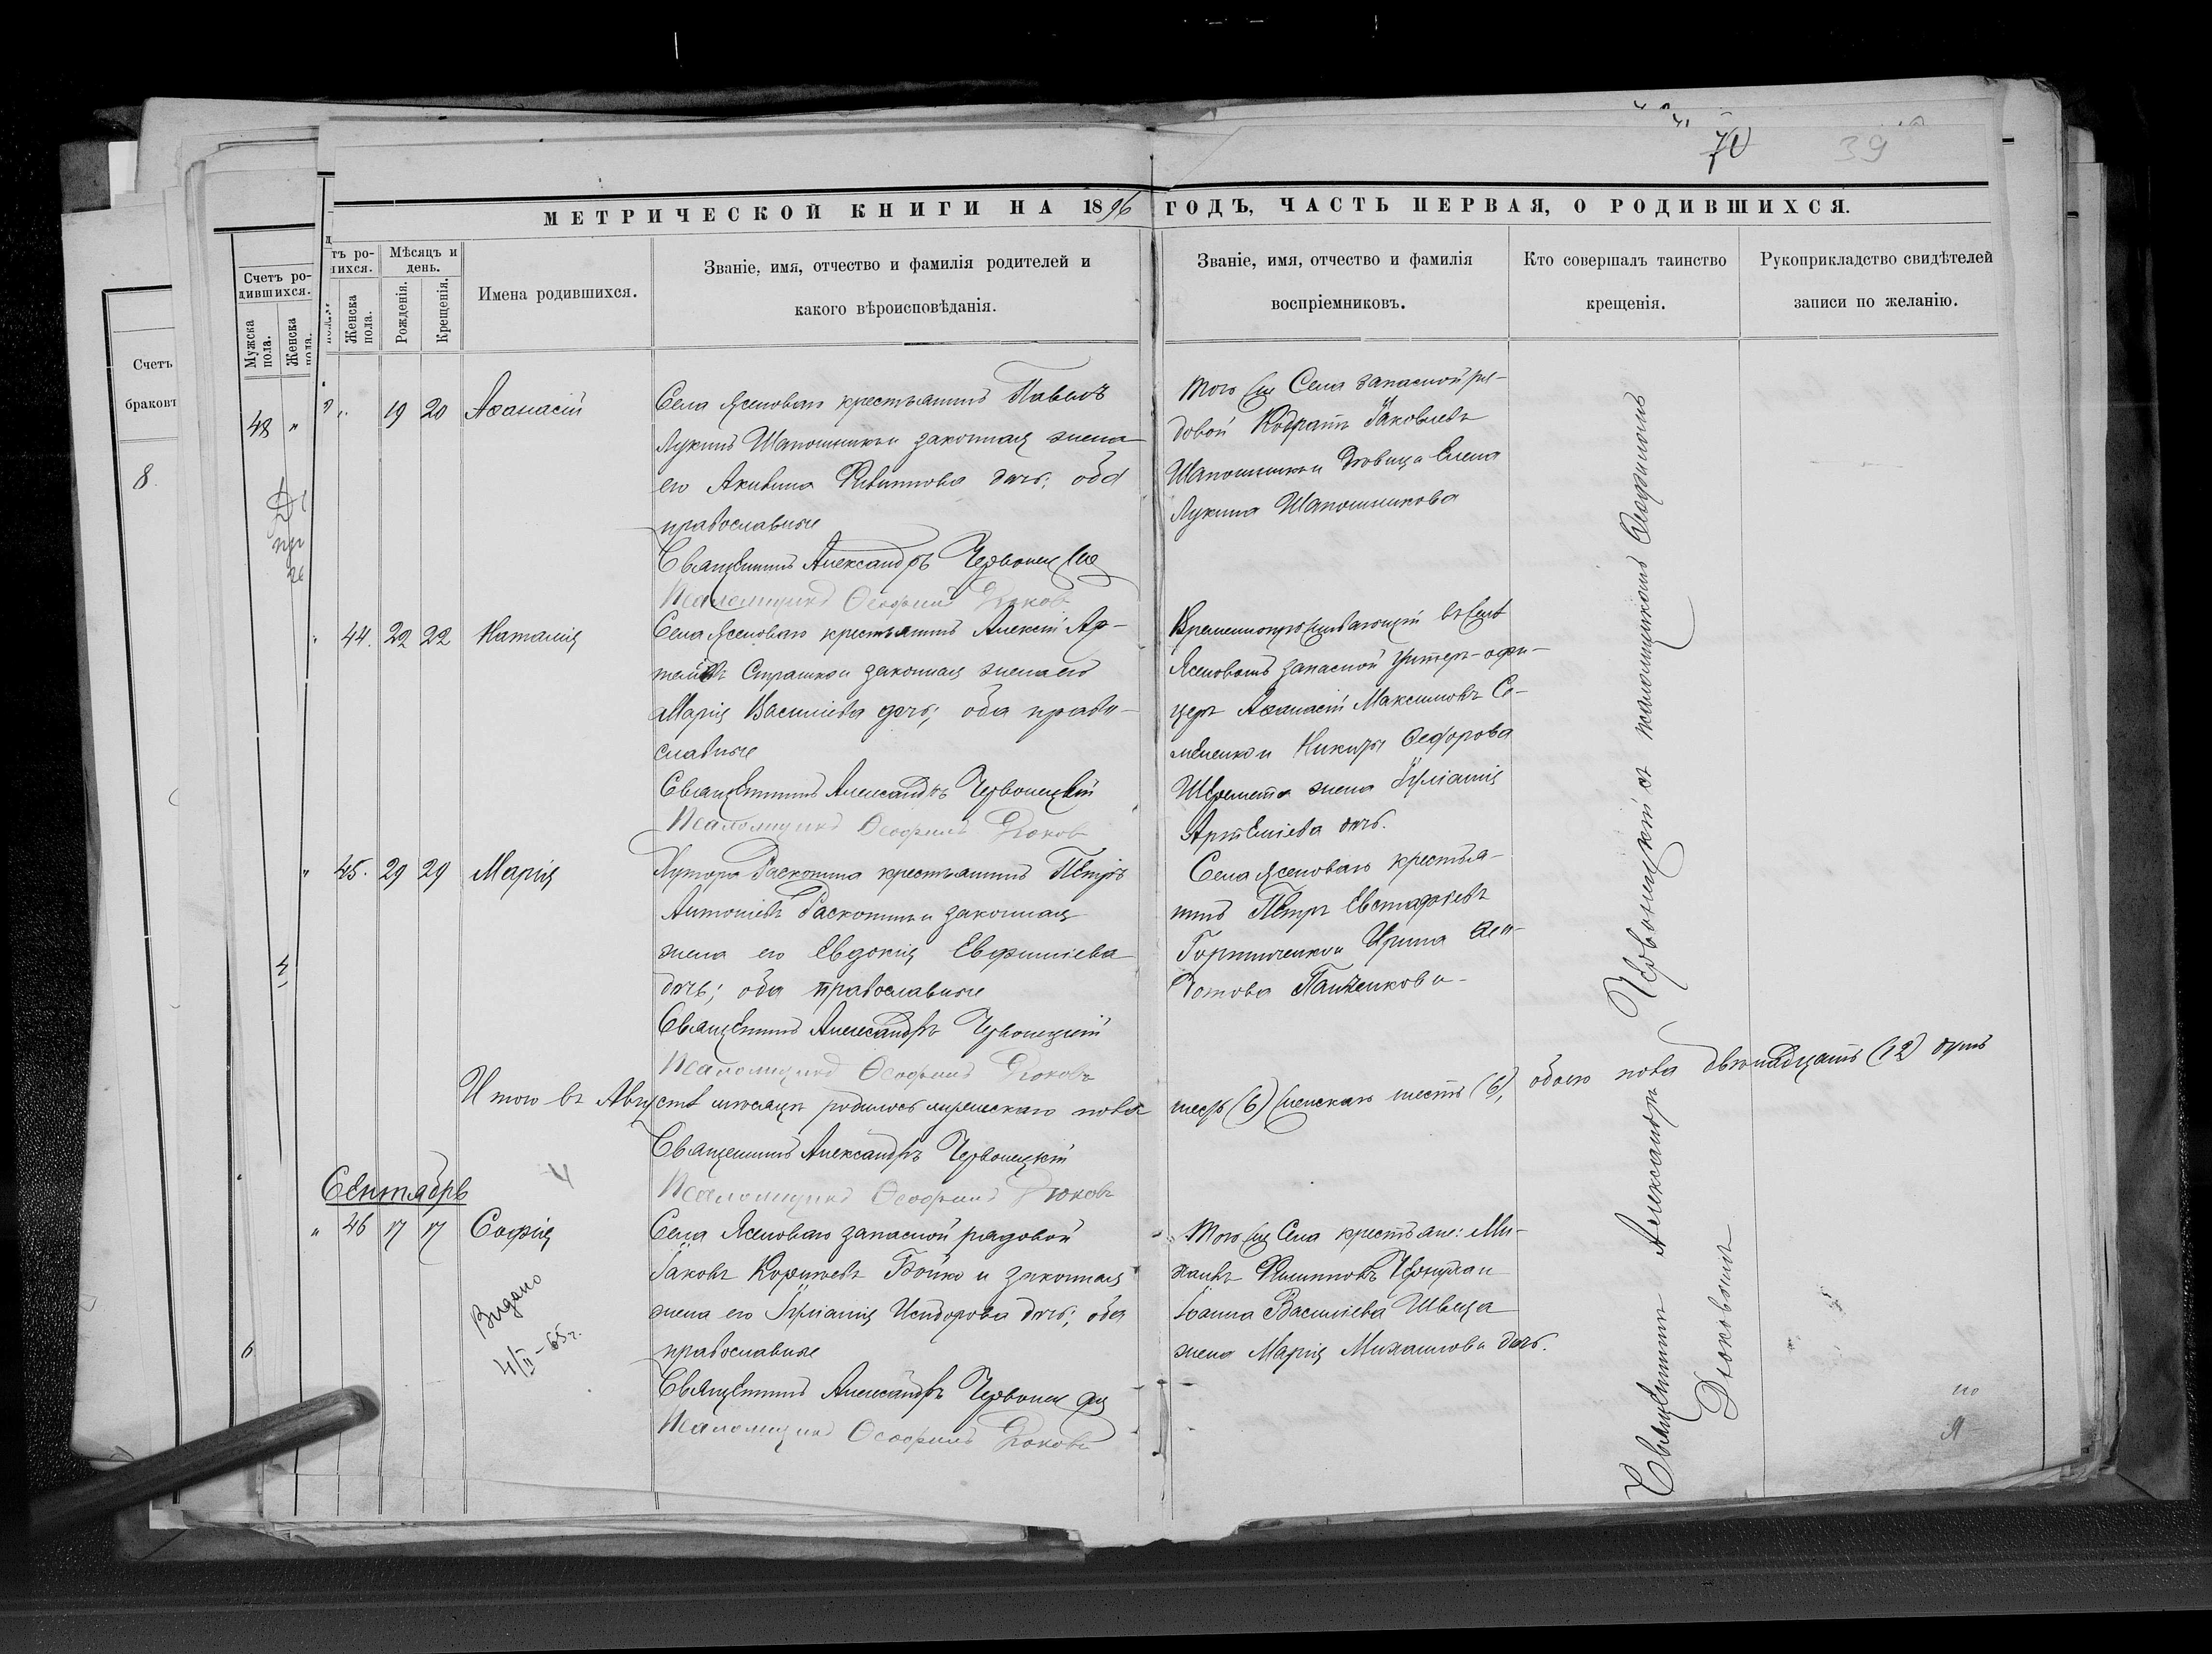 70 39
МЕТРИЧЕСКОЙ КНИГИ НА 1896 ГОДЪ, ЧАСТЬ ПЕРВАЯ, О РОДИВШИХСЯ.
Счетъ
браковъ
8.
Счетъ ро-
дившихся.
Мужска пола.
Женска пола.
48 "
4
6
тъ ро-
ихся.
Женска пола.
Мѣсяцъ и
день.
Рожденія.
Крещенія.
Имена родившихся.
Званіе, имя, отчество и фамилія родителей и
какого вѣроисповѣданія.
Званіе, имя, отчество и фамилія
воспріемниковъ.
Кто совершалъ таинство
крещенія.
Рукоприкладство свидѣтелей
записи по желанію.
19 20 Аѳанасій
Села Ясеноваго крестьянинъ Павелъ
Лукинъ Шапошникъ и законная жена
его Акилина Филиппова дочь; оба
православные
Священникъ Александръ Червонецкій
Псаломщикъ Ѳеофилъ Дюковъ
Того же Села запасной ря-
довой Кодратъ Іаковлевъ
Шапошникъ и дѣвица Елена
Лукина Шапошникова
" 44. 22 22 Наталія
Села Ясеноваго крестьянинъ Алексій Ар-
темовъ Страшко и законная жена его
Марія Василіева дочь; оба право-
славные
Священникъ Александръ Червонецкій
Псаломщикъ Ѳеофилъ Дюковъ
Временнопроживающій въ Селѣ
Ясеновомъ запасной унтеръ-офи-
церъ Аѳанасій Максимовъ Се-
мененко и Никиты Ѳедорова
Шеремета жена Іуліанія
Артеміева дочь.
" 45. 29 29 Марія
Хутора Раскопина крестьянинъ Петръ
Антоніевъ Раскопинъ и законная
жена его Евдокія Евфиміева
дочь; оба православные
Священникъ Александръ Червонецкій
Псаломщикъ Ѳеофилъ Дюковъ
Села Ясеноваго крестья-
нинъ Петръ Евстафіевъ
Горпинченко и Ирина
Панченкова
Итого въ Августѣ мѣсяцѣ родилось мужескаго пола шесть (6) женскаго шесть (6), обоего пола двѣнадцать (12) душъ
Священникъ Александръ Червонецкій
Псаломщикъ Ѳеофилъ Дюковъ
Сентябрь
" 46 17 17 Софія
Видано
4/II-65 г.
Села Ясеноваго запасной рядовой
Іаковъ Бойко и законная
жена его Іуліанія Исидорова дочь; оба
православные
Священникъ Александръ Червонецкій
Псаломщикъ Ѳеофилъ Дюковъ
Того же Села крестьяне: Ми-
хаилъ Филипповъ и
Іоанна Василіева Швеца
жена Марія Михаилова дочь.
Священникъ Александръ Червонецкій съ псаломщикомъ Ѳеофиломъ
Дюковымъ